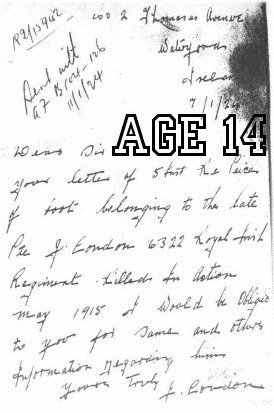 2 Thomases Avenue
Waterford
Ireland
7/1/24
AGE 14
Dear Sir
your letter of 5 Inst Re Peice
of boot belonging to the late
Pte J. Condon 6322 Royal Irish
Regiment Killed In Action
May 1915 I would be Obliged
to you for same and others
Information Regarding him
Yours Truly J. Condon
Dead with
11/1/24